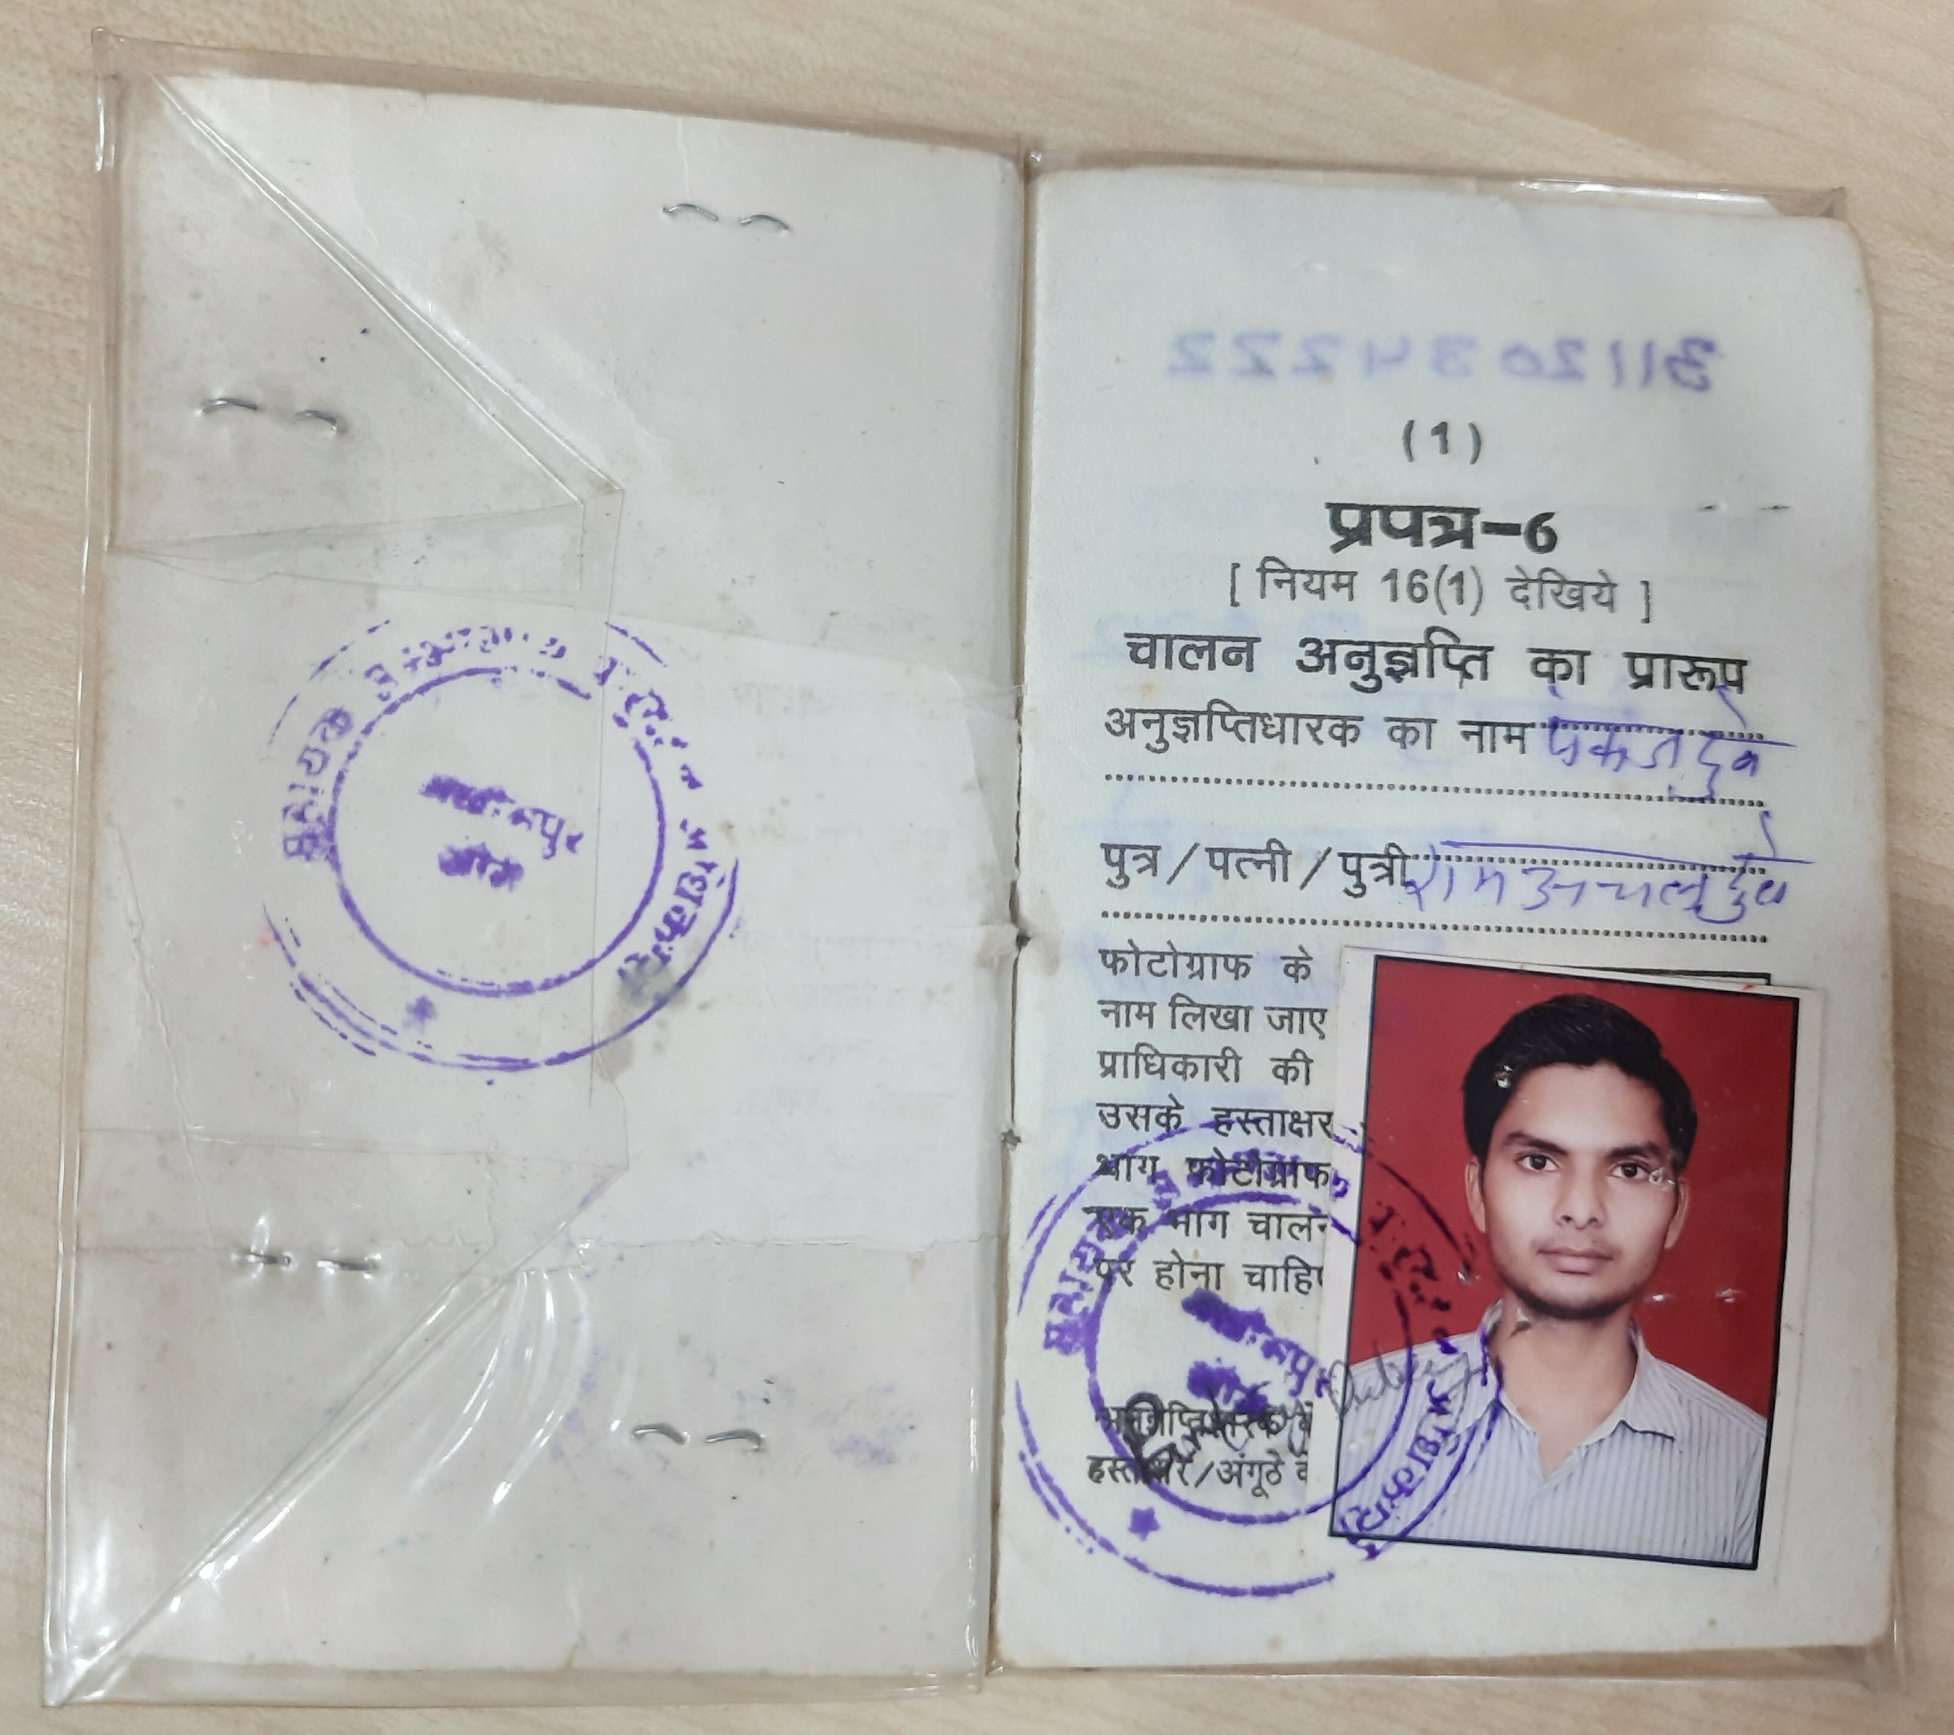 सहायक
(1)
प्रपत्र-6
[ नियम 16(1) देखिये ]
चालन अनुज्ञप्ति का प्रारूप
अनुज्ञप्तिधारक का नाम पंकज दुबे
पुत्र / पत्नी / पुत्री राम अचल दुबे
फोटोग्राफ के
नाम लिखा जाए
प्राधिकारी की
उसके हस्ताक्षर
भाग फोटोग्राफ
एक भाग चालन
पर होना चाहिए
हस्ताक्षर/अंगूठे